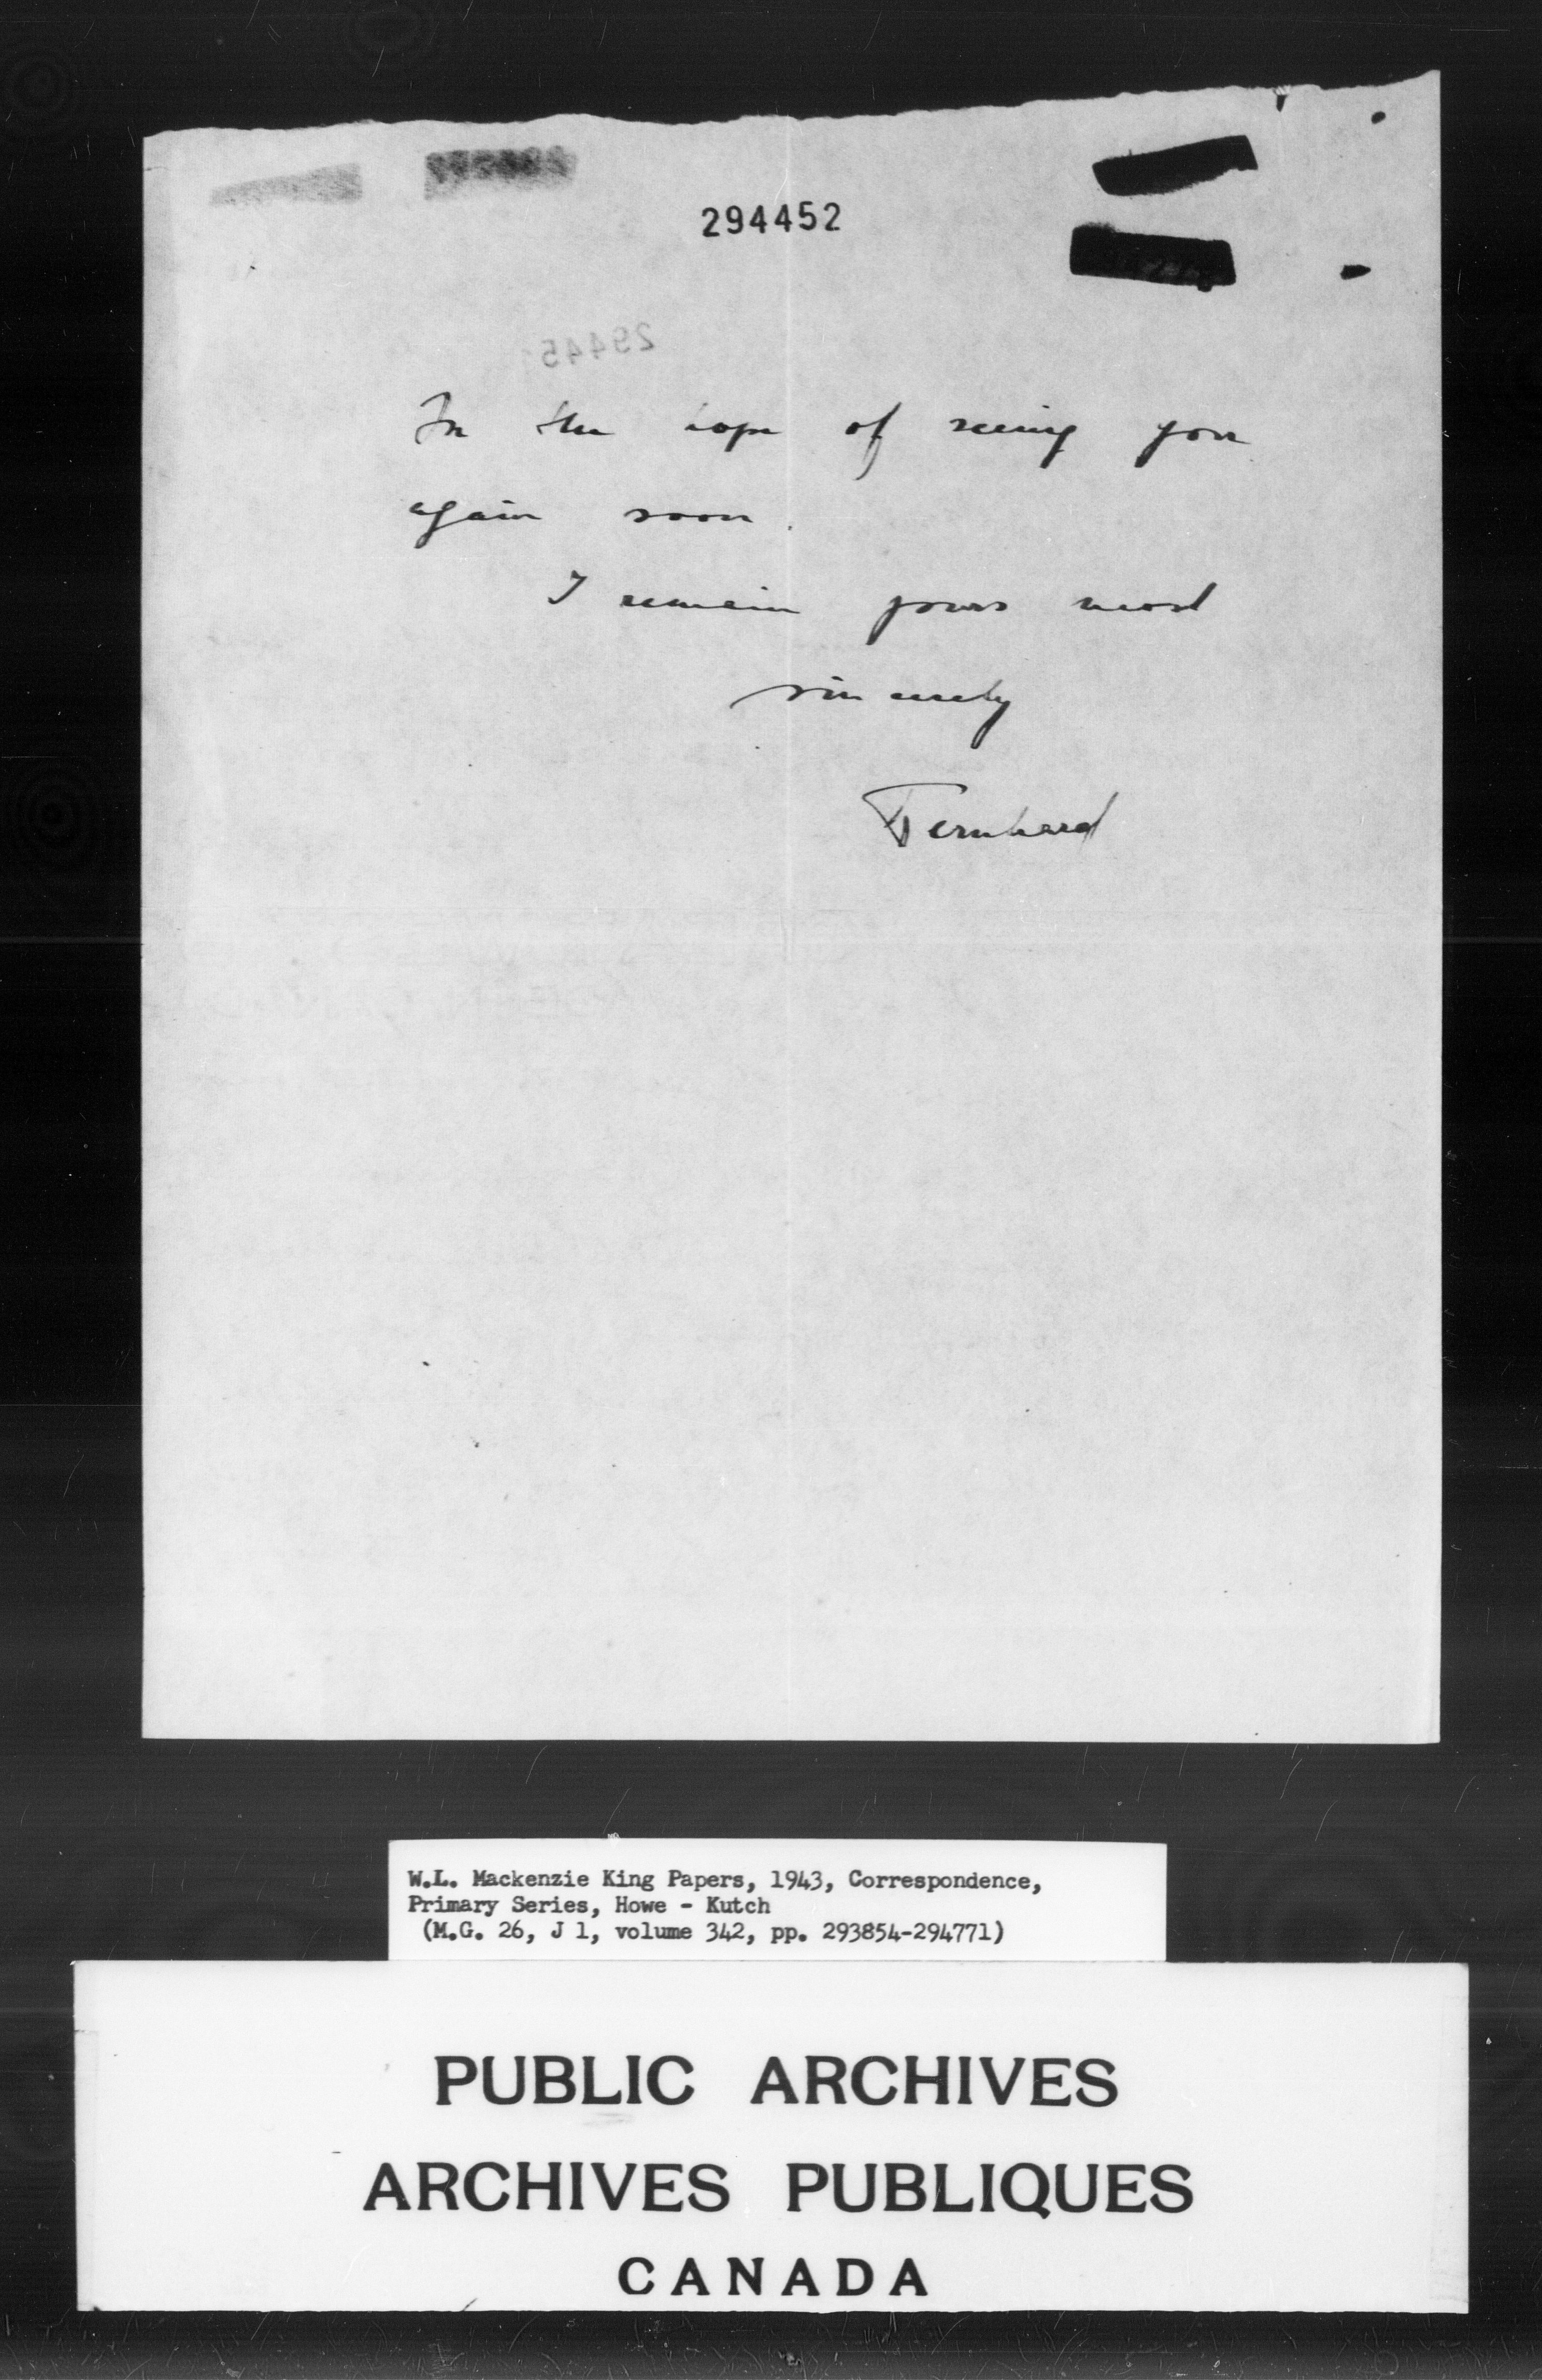 294452
29445
In the hope of seeing you
again soon.
I remain yours most
sincerely
Bernhard
W.L. Mackenzie King Papers, 1943, Correspondence,
Primary Series, Howe - Kutch
(M.G. 26, J 1, volume 342, pp. 293854-294771)
PUBLIC ARCHIVES
ARCHIVES PUBLIQUES
CANADA